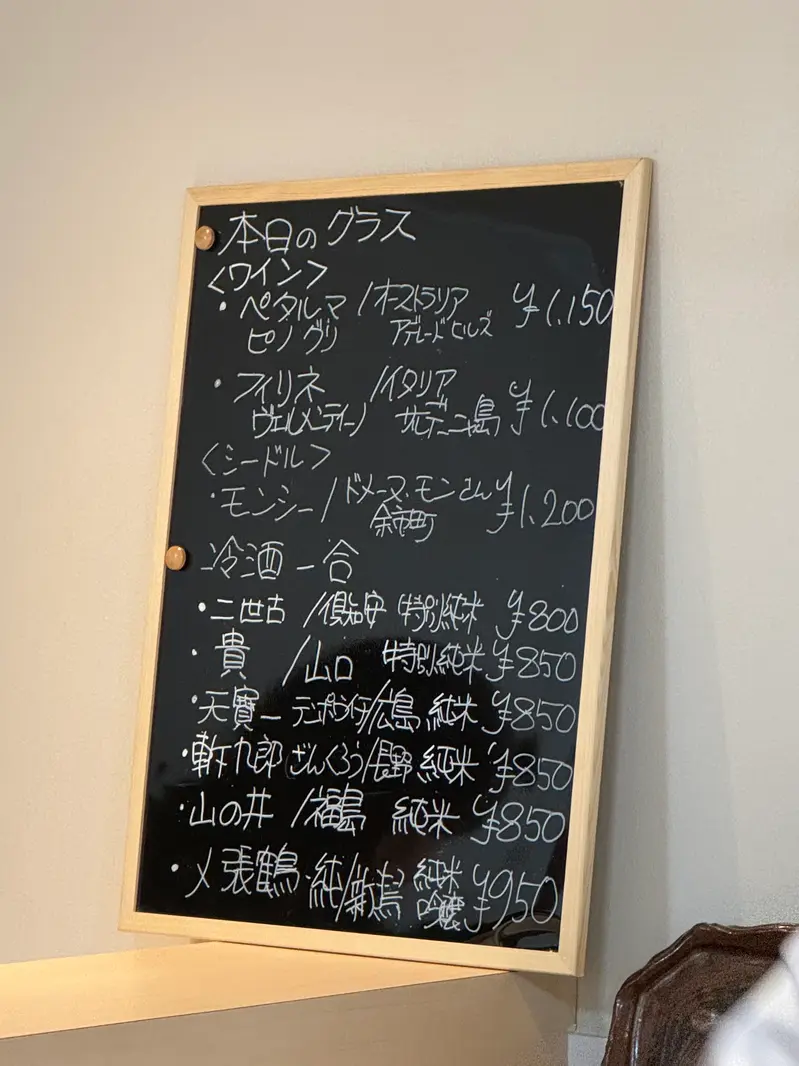 本日のグラス
<ワイン>
・ペタルマ /オーストラリア ¥1,150
ピノグリ アデレードヒルズ
・フィリネ /イタリア ¥1,100
ヴェルメンティーノ サルデーニャ島
<シードル>
・モンシー/ドメーヌ・モンさん ¥1,200
余市町
冷酒 一合
・二世古 /倶知安 特別純米 ¥800
・貴 /山口 特別純米 ¥850
・天寶一 テンポウイチ/広島 純米 ¥850
・斬九郎 ざんくろう/長野 純米 ¥850
・山の井 /福島 純米 ¥850
・〆張鶴 純/新潟 純米 ¥950
吟醸